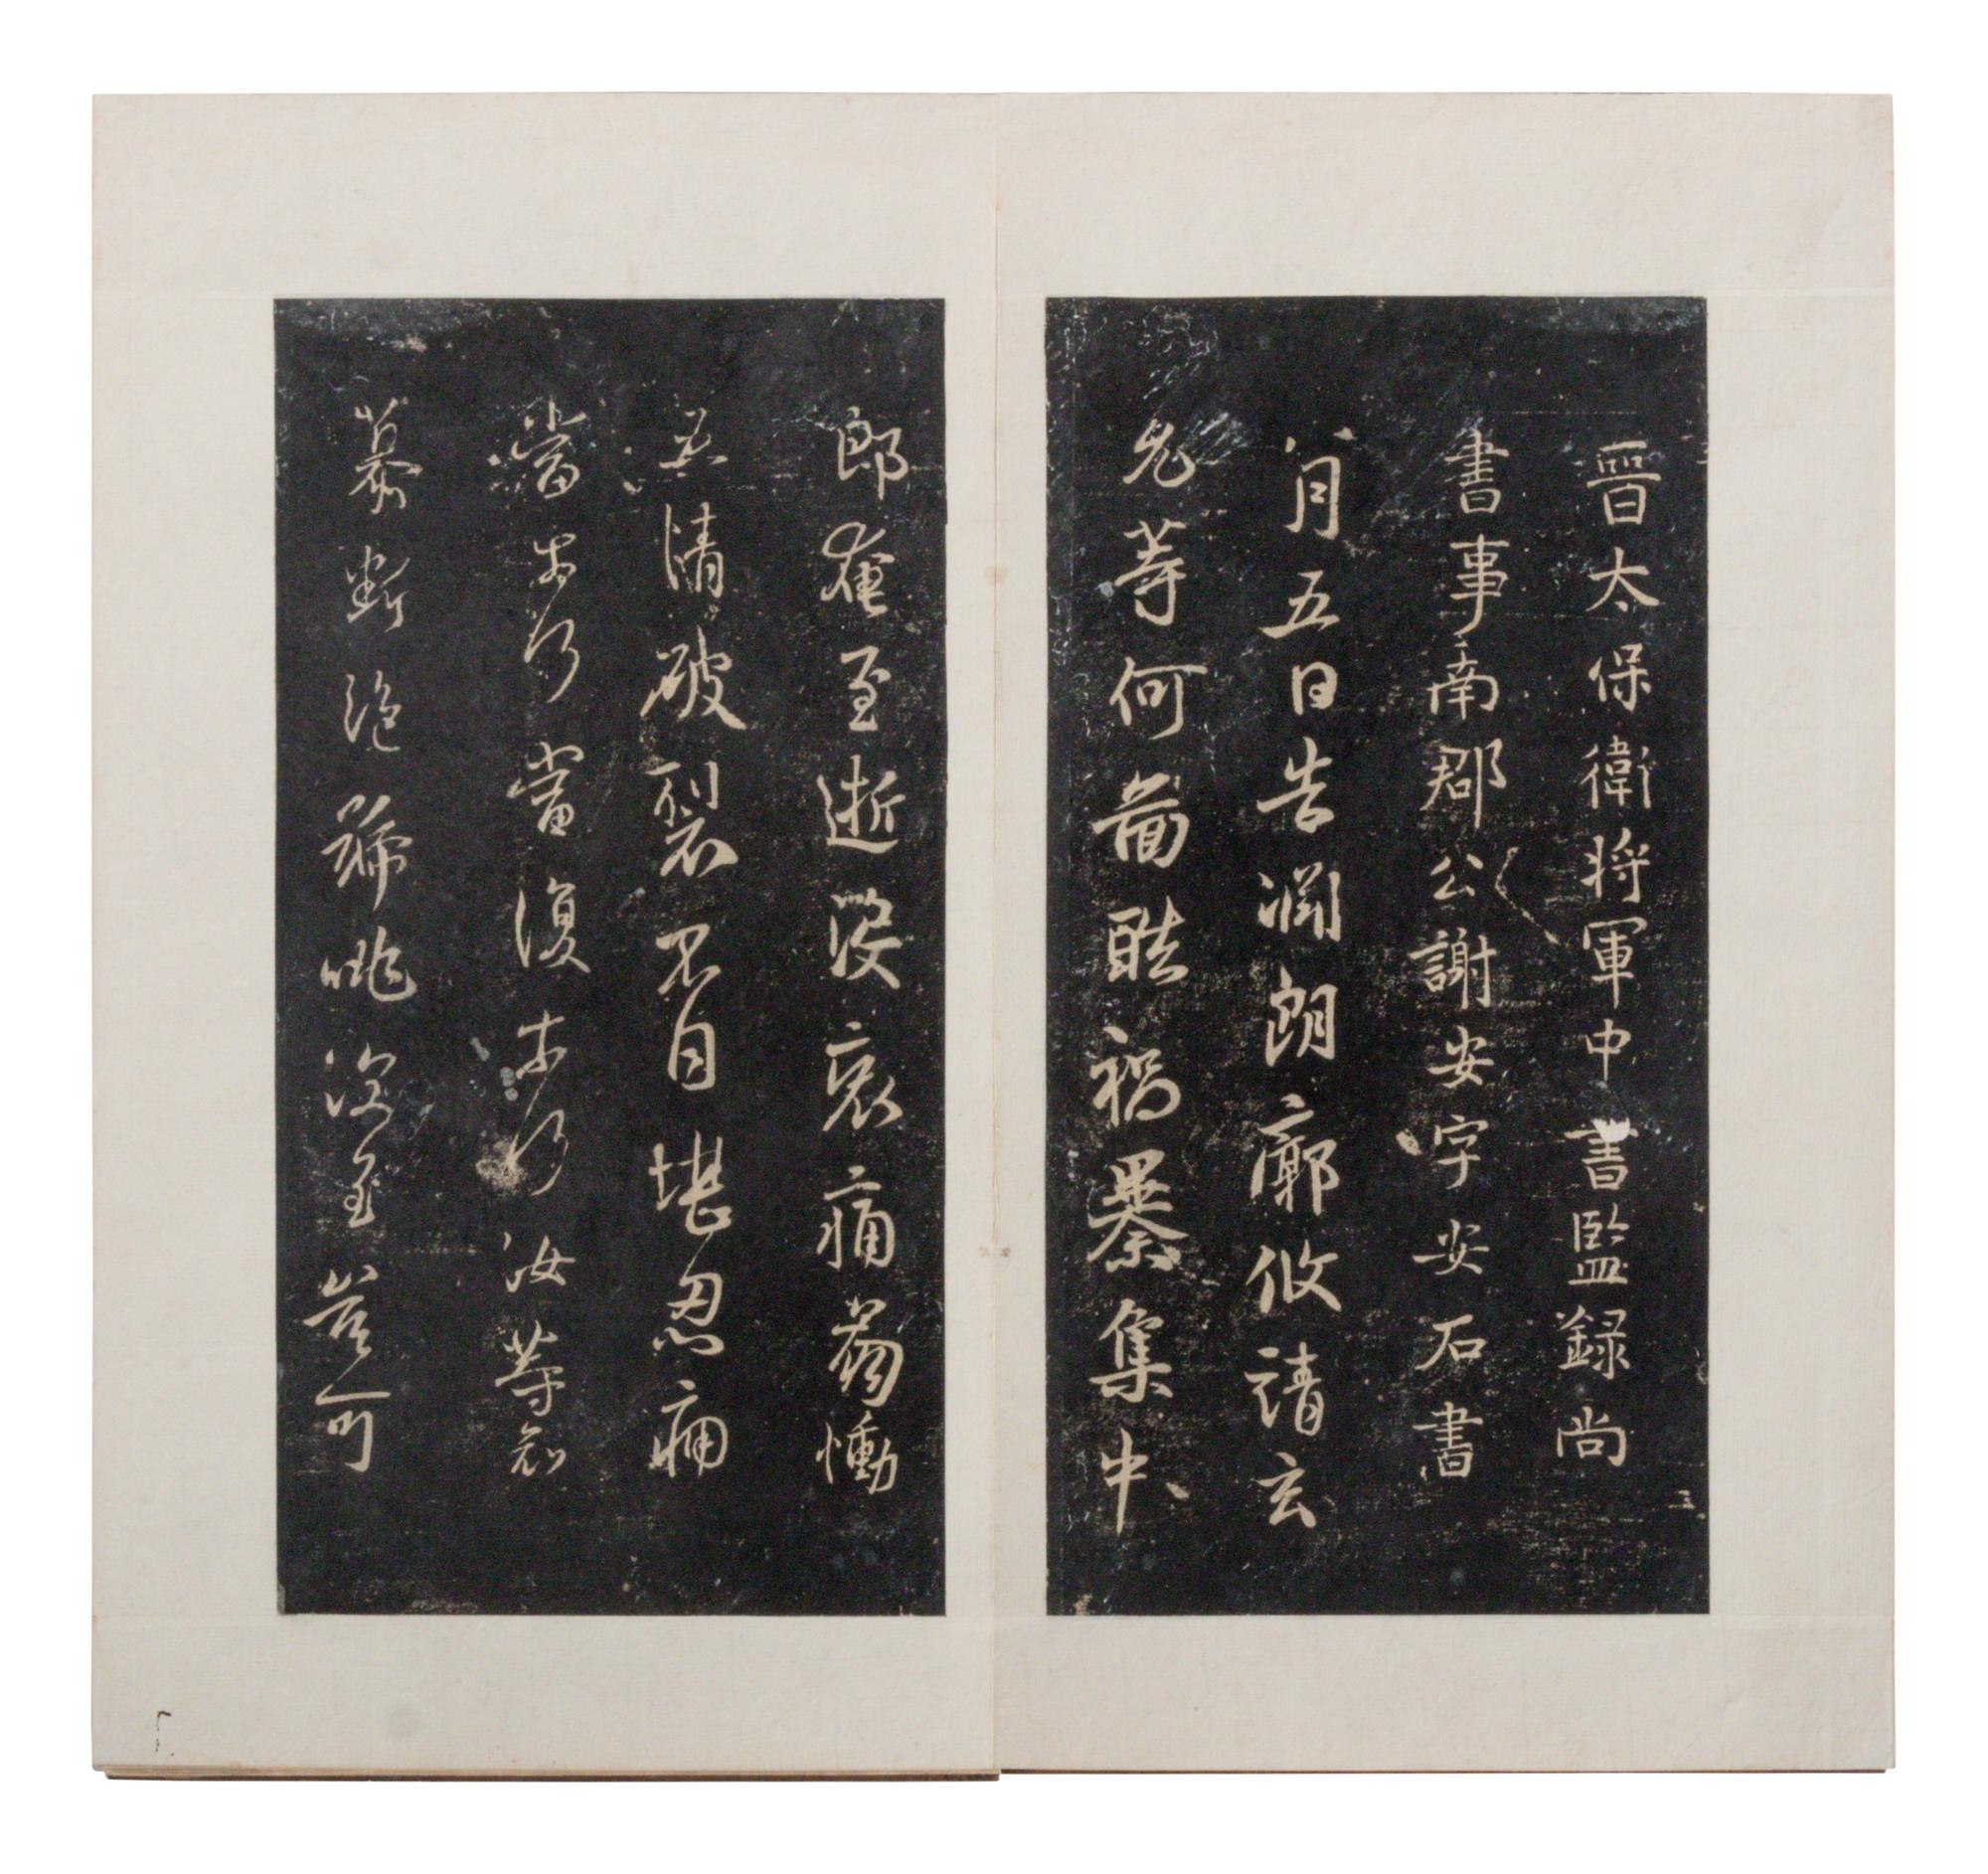 晉太保衛將軍中書監錄尚
書事南郡公謝安字安石書
月五日告淵朗廓攸靖玄
允等何圖酷禍暴集中
郎奄至逝沒哀痛崩慟
五情破裂不自堪忍痛
當奈何當復奈何汝等
慕斷絕號咷深至豈可